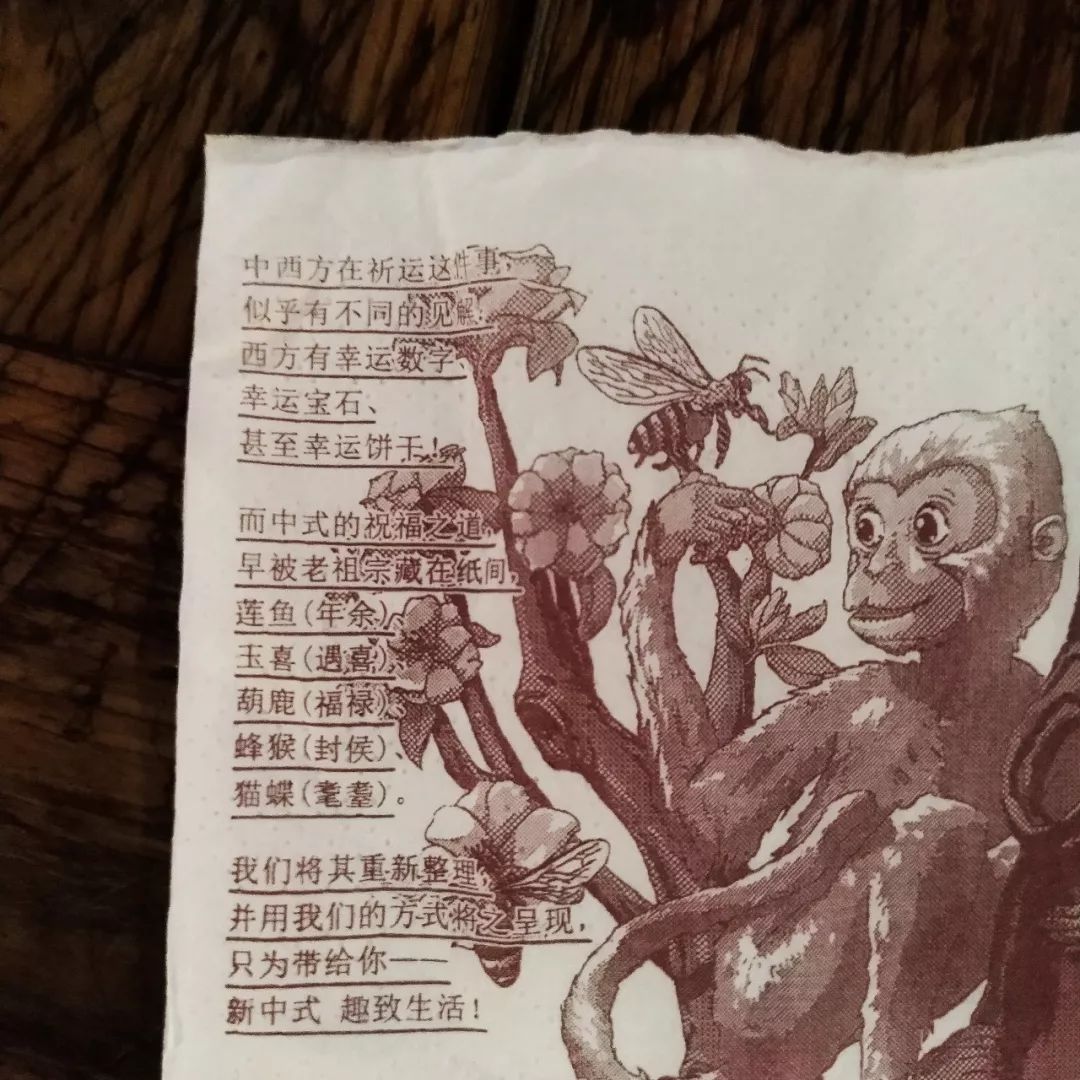 中西方在祈运这件事,
似乎有不同的见解!
西方有幸运数字、
幸运宝石、
甚至幸运饼干!
而中式的祝福之道,
早被老祖宗藏在纸间,
莲鱼(年余)、
玉喜(遇喜)、
葫鹿(福禄)、
蜂猴(封侯)、
猫蝶(耄耋)。
我们将其重新整理
并用我们的方式将之呈现,
只为带给你——
新中式 趣致生活!